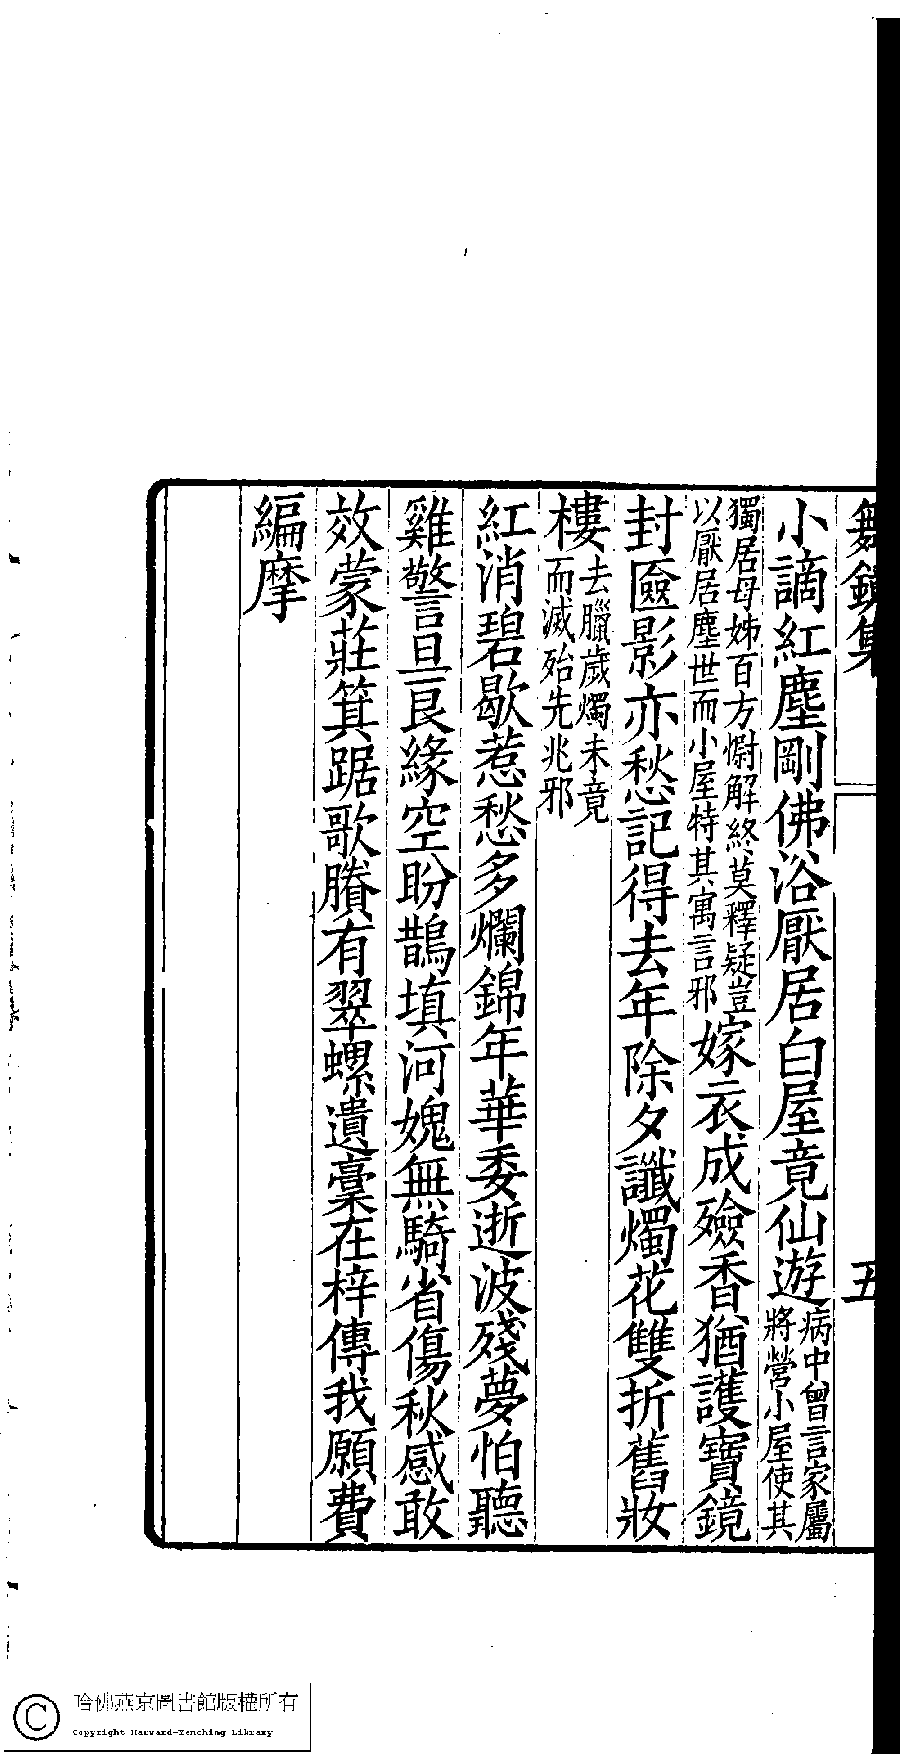 舞鏡集
五
小謫紅塵剛佛浴厭居白屋竟仙遊病中曾言家屬將營小屋使其
獨居母姊百方慰解終莫釋疑豈以厭居塵世而小屋特其寓言邪嫁衣成殮香猶護寶鏡
封匳影亦愁記得去年除夕讖燭花雙折舊妝
樓去臘歲燭未竟而滅殆先兆邪
紅消碧歇惹愁多爛錦年華委逝波殘夢怕聽
雞警旦艮緣空盼鵲填河媿無騎省傷秋感敢
效蒙莊箕踞歌賸有翠螺遺稾在梓傳我願費
編摩
哈佛燕京圖書館版權所有
Copyright Harvard-Yenching Library